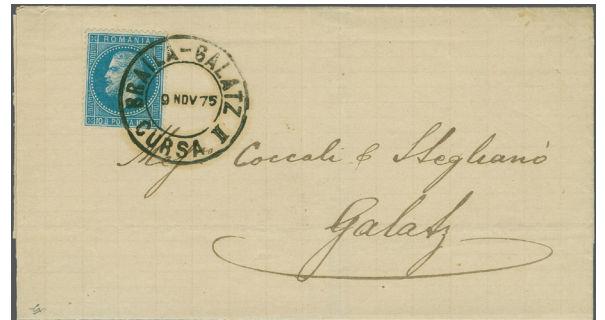 ROMANIA
BRAILA-GALATZ
9 NOV 75
CURSA II
Coccali & Stegliano
Galatz